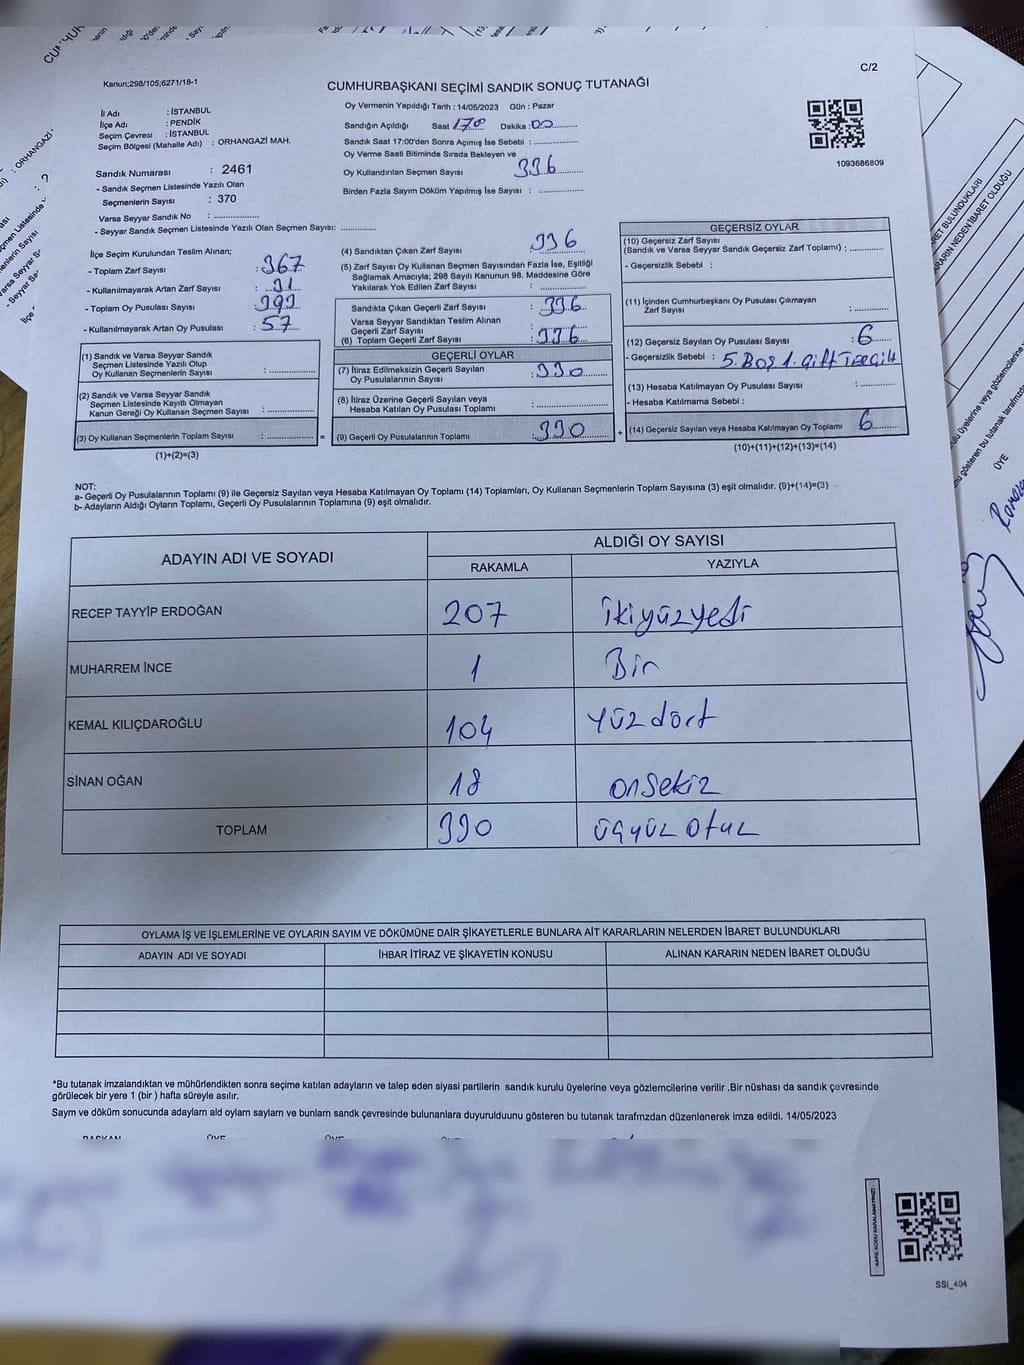 Kanun;298/105;6271/18-1
C/2
CUMHURBAŞKANI SEÇİMİ SANDIK SONUÇ TUTANAĞI
İl Adı : İSTANBUL
İlçe Adı : PENDİK
Seçim Çevresi : İSTANBUL
Seçim Bölgesi (Mahalle Adı) : ORHANGAZİ MAH.
Sandık Numarası : 2461
- Sandık Seçmen Listesinde Yazılı Olan
Seçmenlerin Sayısı : 370
Varsa Seyyar Sandık No : ..............
- Seyyar Sandık Seçmen Listesinde Yazılı Olan Seçmen Sayısı: ..............
Oy Vermenin Yapıldığı Tarih : 14/05/2023 Gün : Pazar
Sandığın Açıldığı Saat 17⁰⁰ Dakika : 00
Sandık Saat 17:00'den Sonra Açımış İse Sebebi : ..............
Oy Verme Saati Bitiminde Sırada Bekleyen ve
Oy Kullandırılan Seçmen Sayısı 336
Birden Fazla Sayım Döküm Yapılmış İse Sayısı : ..............
1093686809
İlçe Seçim Kurulundan Teslim Alınan;
- Toplam Zarf Sayısı : 367
- Kullanılmayarak Artan Zarf Sayısı : 31
- Toplam Oy Pusulası Sayısı : 393
- Kullanılmayarak Artan Oy Pusulası : 57
(1) Sandık ve Varsa Seyyar Sandık
Seçmen Listesinde Yazılı Olup
Oy Kullanan Seçmenlerin Sayısı : ..............
(2) Sandık ve Varsa Seyyar Sandık
Seçmen Listesinde Kayıtlı Olmayan
Kanun Gereği Oy Kullanan Seçmen Sayısı : ..............
(3) Oy Kullanan Seçmenlerin Toplam Sayısı : .............. =
(1)+(2)=(3)
(4) Sandıktan Çıkan Zarf Sayısı 336
(5) Zarf Sayısı Oy Kullanan Seçmen Sayısından Fazla İse, Eşitliği
Sağlamak Amacıyla; 298 Sayılı Kanunun 98. Maddesine Göre
Yakılarak Yok Edilen Zarf Sayısı : ..............
Sandıkta Çıkan Geçerli Zarf Sayısı : 336
Varsa Seyyar Sandıktan Teslim Alınan
Geçerli Zarf Sayısı
(6) Toplam Geçerli Zarf Sayısı : 336
GEÇERLİ OYLAR
(7) İtiraz Edilmeksizin Geçerli Sayılan
Oy Pusulalarının Sayısı : 330
(8) İtiraz Üzerine Geçerli Sayılan veya
Hesaba Katılan Oy Pusulası Toplamı : ..............
(9) Geçerli Oy Pusulalarının Toplamı : 330 +
GEÇERSİZ OYLAR
(10) Geçersiz Zarf Sayısı
(Sandık ve Varsa Seyyar Sandık Geçersiz Zarf Toplamı) : ..............
- Geçersizlik Sebebi :
(11) İçinden Cumhurbaşkanı Oy Pusulası Çıkmayan
Zarf Sayısı : ..............
(12) Geçersiz Sayılan Oy Pusulası Sayısı : 6
- Geçersizlik Sebebi : 5.Boş 1.Çift TERCİH
(13) Hesaba Katılmayan Oy Pusulası Sayısı : ..............
- Hesaba Katılmama Sebebi :
(14) Geçersiz Sayılan veya Hesaba Katılmayan Oy Toplamı 6
(10)+(11)+(12)+(13)=(14)
NOT:
a- Geçerli Oy Pusulalarının Toplamı (9) ile Geçersiz Sayılan veya Hesaba Katılmayan Oy Toplamı (14) Toplamları, Oy Kullanan Seçmenlerin Toplam Sayısına (3) eşit olmalıdır. (9)+(14)=(3)
b- Adayların Aldığı Oyların Toplamı, Geçerli Oy Pusulalarının Toplamına (9) eşit olmalıdır.
ADAYIN ADI VE SOYADI
ALDIĞI OY SAYISI
RAKAMLA YAZIYLA
RECEP TAYYİP ERDOĞAN 207 ikiyüzyedi
MUHARREM İNCE 1 Bir
KEMAL KILIÇDAROĞLU 104 yüz dört
SİNAN OĞAN 18 onsekiz
TOPLAM 330 üçyüz otuz
OYLAMA İŞ VE İŞLEMLERİNE VE OYLARIN SAYIM VE DÖKÜMÜNE DAİR ŞİKAYETLERLE BUNLARA AİT KARARLARIN NELERDEN İBARET BULUNDUKLARI
ADAYIN ADI VE SOYADI İHBAR İTİRAZ VE ŞİKAYETİN KONUSU ALINAN KARARIN NEDEN İBARET OLDUĞU
*Bu tutanak imzalandıktan ve mühürlendikten sonra seçime katılan adayların ve talep eden siyasi partilerin sandık kurulu üyelerine veya gözlemcilerine verilir .Bir nüshası da sandık çevresinde
görülecek bir yere 1 (bir ) hafta süreyle asılır.
Saym ve döküm sonucunda adaylarn ald oylarn saylarn ve bunlarn sandk çevresinde bulunanlara duyurulduunu gösteren bu tutanak tarafmzdan düzenlenerek imza edildi. 14/05/2023
BAŞKAN ÜYE ÜYE
KARE KODU KARALAMAYINIZ!
SSI_404
ÜYE